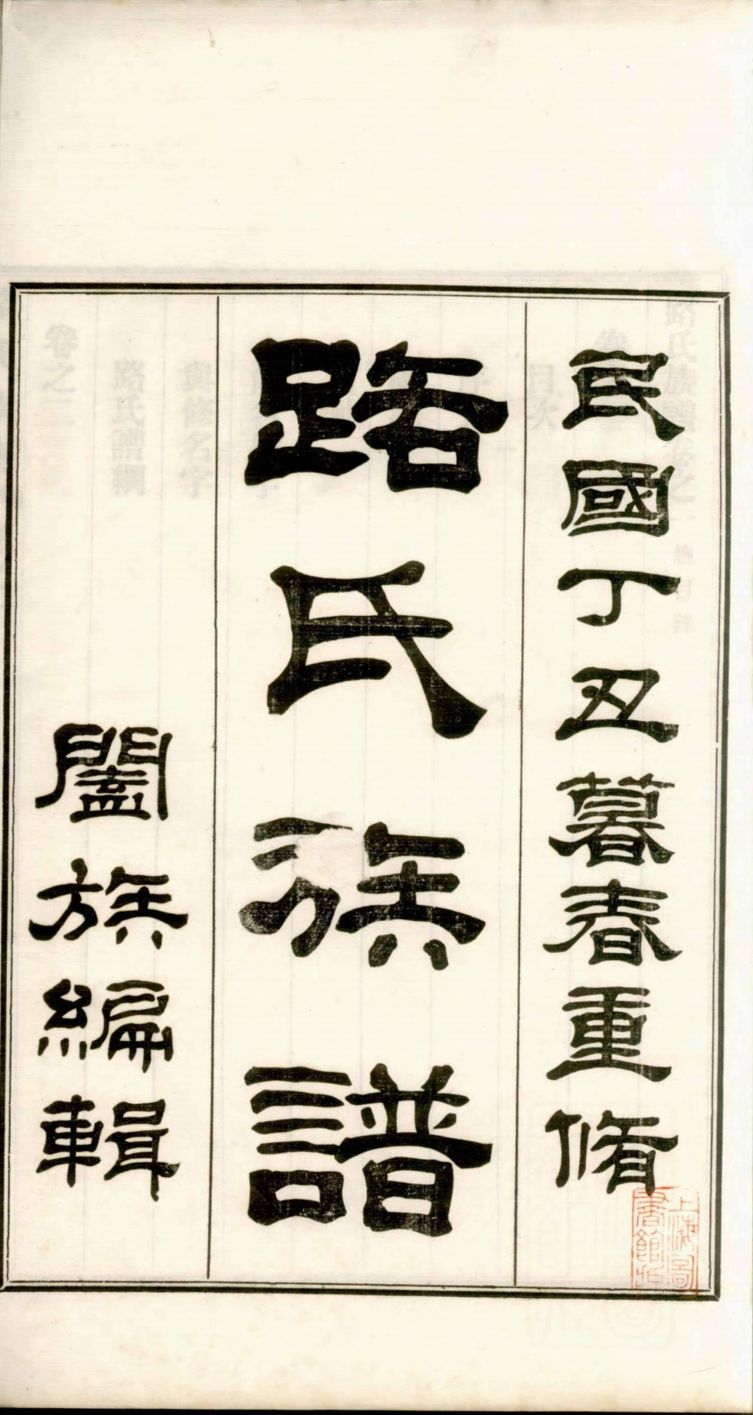 民國丁丑暮春重脩
路氏族譜
闔族編輯
上海圖
書館藏